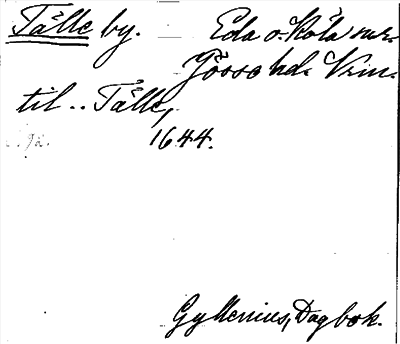 Tälle by. Eda o. Köla snr.
Jösse hd. Vrml.
til .. Tälle,
1644.
Gyllenius, Dagbok.